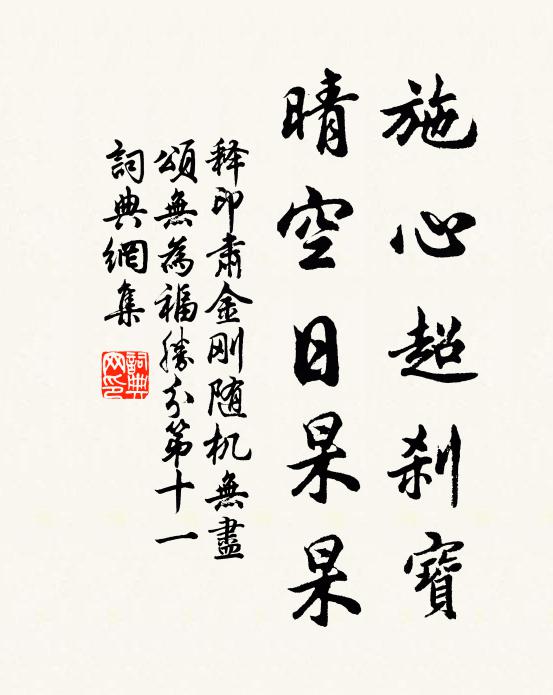 施心超刹寶
晴空日杲杲
释印肅金刚随机無盡
頌無為福勝分第十一
詞典網集
詞典網印